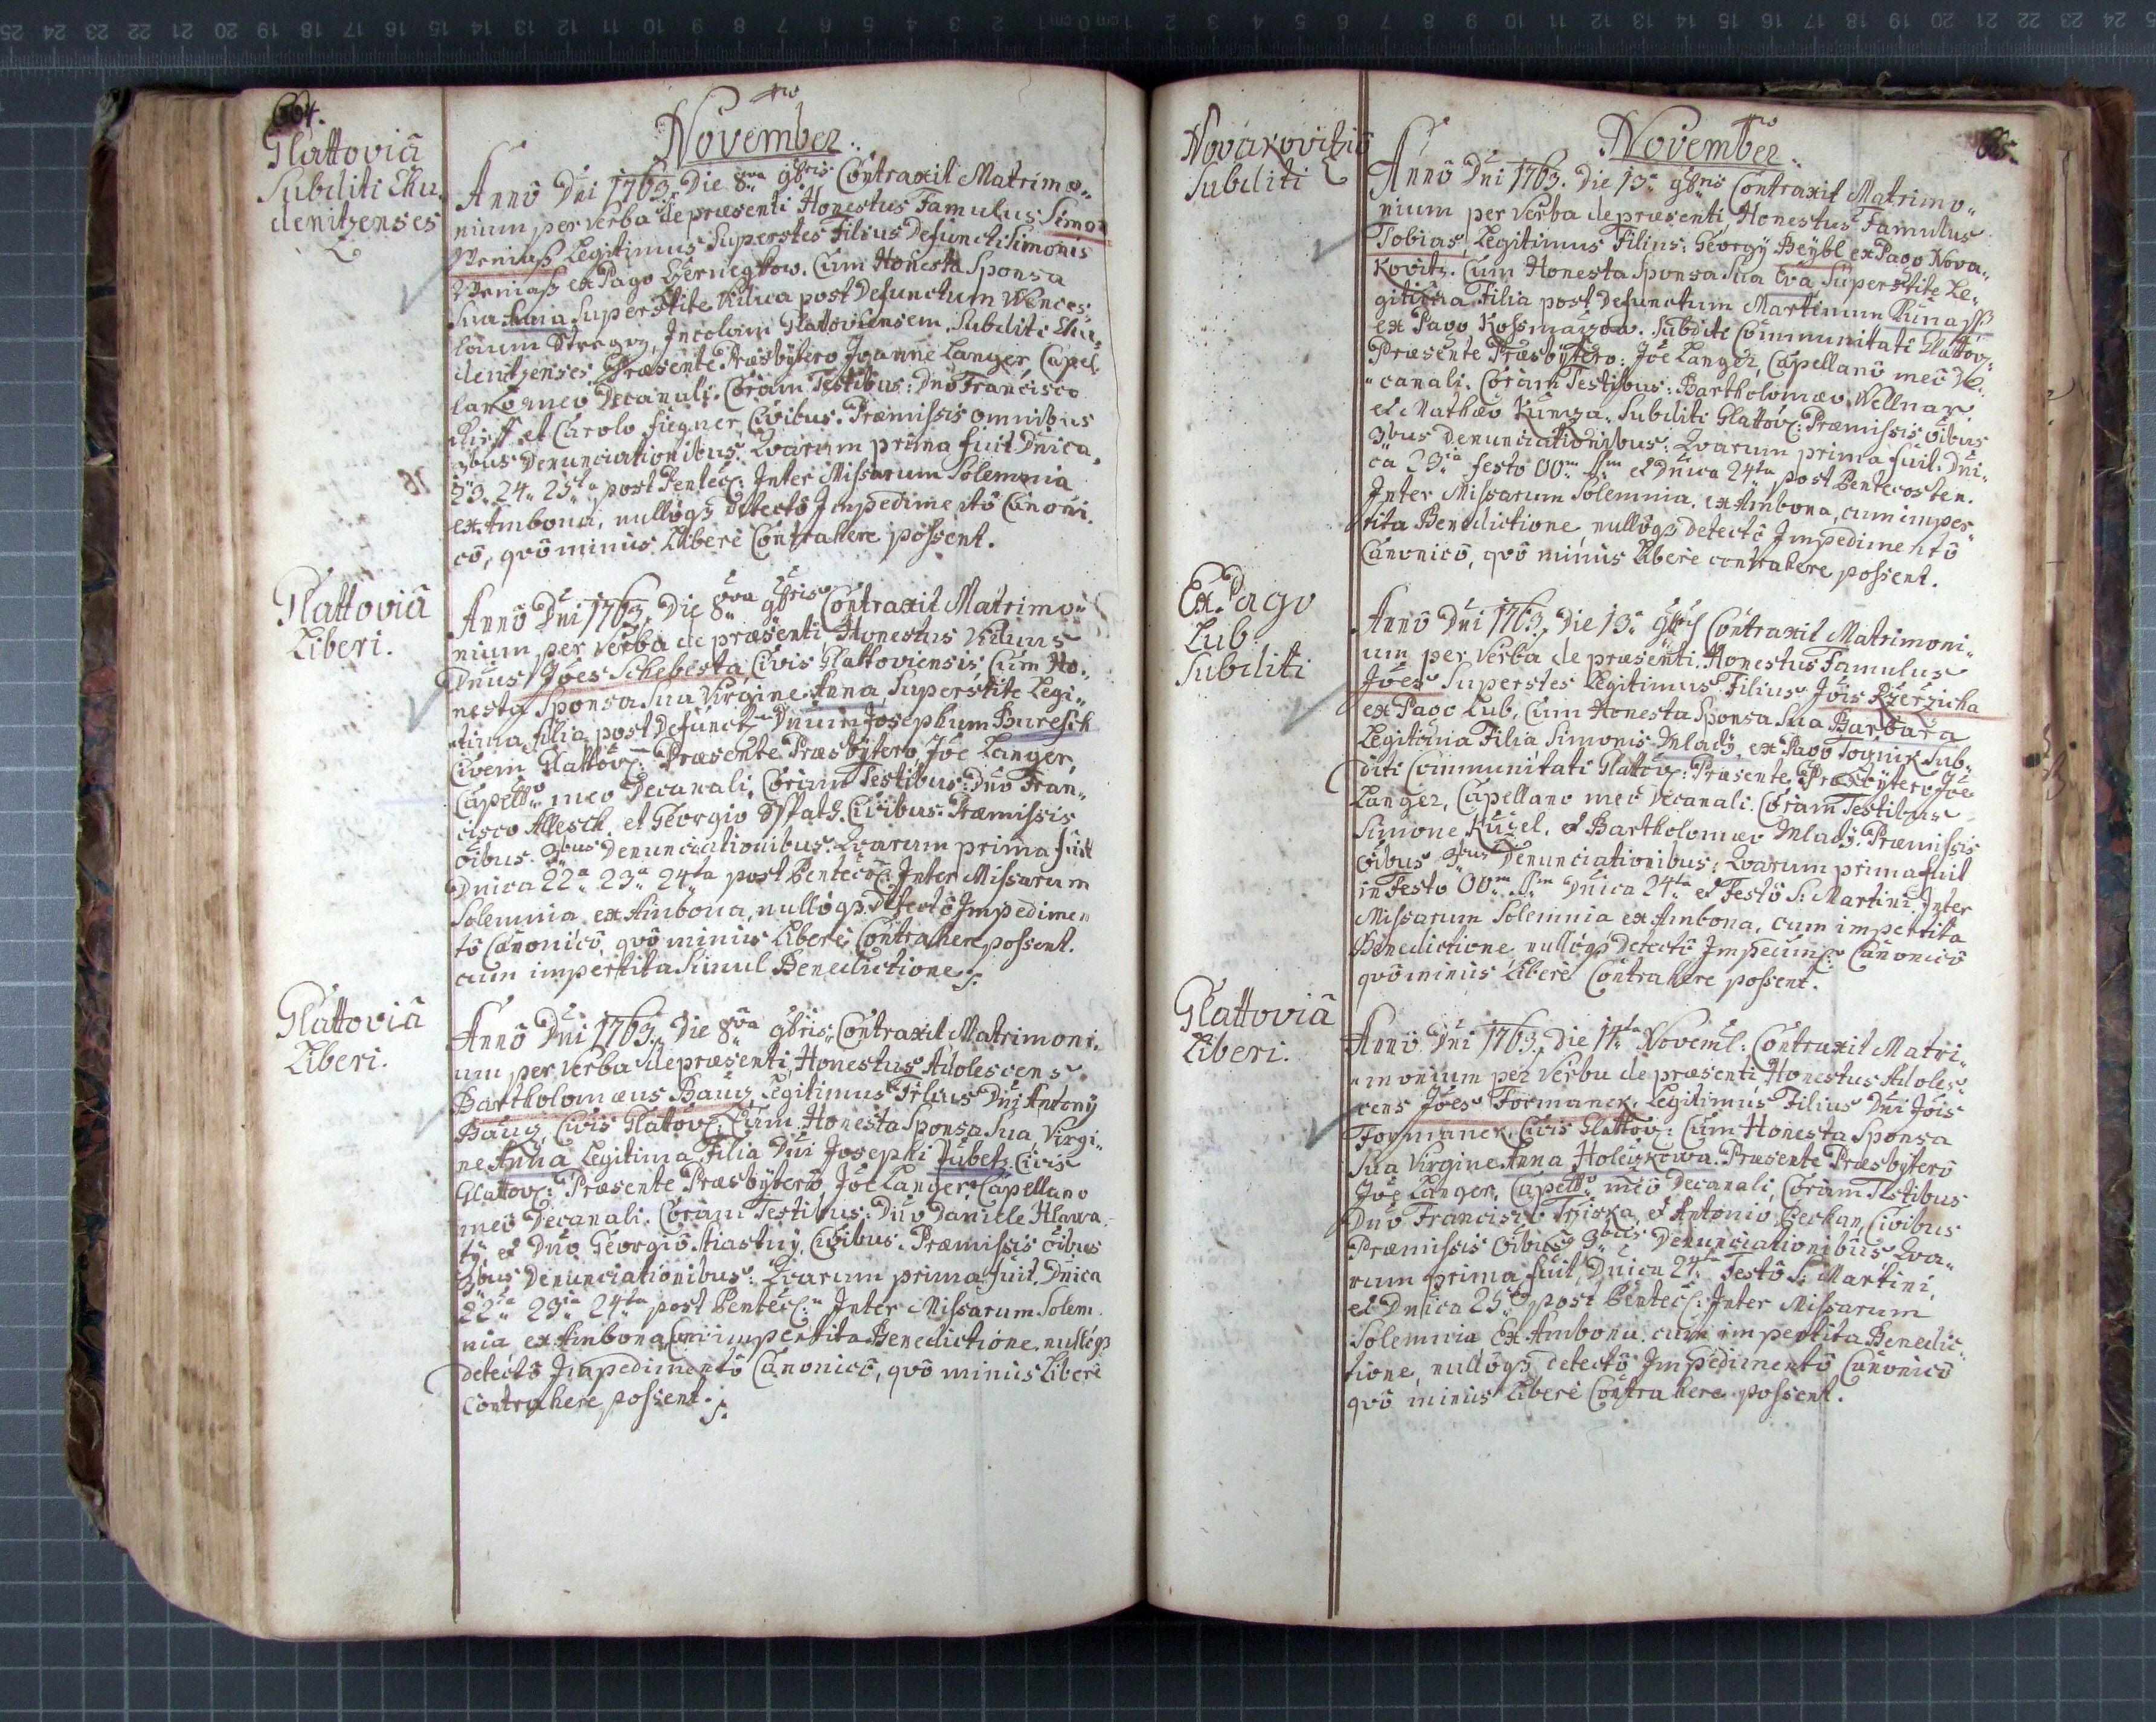 664.
Glattoviâ
Subditi Chu,
denitzenses
November.
Annô Dni 1763. Die 8va 9bris Contraxit Matrimo„
nium per Verba de præsenti Honestus Famulus Simon
Legitimus Superstes Filius Defuncti Simonis
ex Pago Cum Honesta Sponsa
Sua Anna Superstite Filia post Defunctum Wences„
laum Incolam Glattoviensem, Subditi Chu„
denitzenses. Præsente Præsbytero Joanne Langer Capel„
lano meo Decanali. Coram Testibus: Dno Francisco
et Carolo Fiegner, Civibus. Præmissis omnibus
3bus Denunciationibus. Qvarum prima fuit Dnica
23. 24. 25ta post Pentec: Inter Missarum Solemnia
ex Ambona, nullôq3 detectô Impedimentô Canoni„
cô, qvô minus Liberè Contrahere possent.
Glattoviâ
Liberi.
Annô Dni 1763. Die 8va 9bris Contraxit Matrimo„
nium per Verba de præsenti Honestus Viduus
Dnus Jões Schebesta, Civis Glattoviensis, Cum Ho„
nesta Sponsa Sua Virgine Anna Superstite Legi„
tima Filia post Defunct: Dnum Josephum Buresch
Civem Glattov: Præsente Præsbytero, Jõe Langer,
Capellno meo Decanali, Coram Testibus: Dno Fran„
cisco Allesch, et Georgio Civibus. Præmissis
õibus 3bus Denunciationibus. Qvarum prima fuit
Dnica 22a 23a 24ta post Pentec: Inter Missarum
Solemnia ex Ambona, nullôq3 Detectô Impedimen
tô Canonicô, qvô minus Liberè Contrahere possent.
cum impertita Simul Benedictione.
Glattoviâ
Liberi.
Annô Dni 1763. Die 8va 9bris Contraxit Matrimoni„
um per Verba de præsenti, Honestus Adolescens
Bartholomæus Baug, Legitimus Filius Dni Antony
Baug, Civis Glattov: Cum Honesta Sponsa Sua Virgi„
ne Anna Legitima Filia Dni Josephi Civis
Glattov: Præsente Præsbyterô Jõe Langer Capellano
meô Decanali. Coram Testibus: Dno Daniele Hlawa„
ty, et Dno Georgiô Stiastny, Civibus. Præmissis õibus
3bus Denunciationibus: Qvarum prima fuit, Dnica
22da 23ia 24ta post Pentec: Inter Missarum Solem„
nia ex Ambona Cum impertita Benedictione nullôq3
detectô Impedimentô Canonicô, qvô minus Liberè
Contrahere possent.
Novakovitiô
Subditi
November.
665.
Annô Dni 1763. Die 13a 9bris Contraxit Matrimo„
nium per Verba de præsenti, Honestus Famulus
Tobias, Legitimus Filius Georgy Beybl ex Pago Nova„
kovitz. Cum Honesta Sponsa Sua Eva Superstite Le„
gitima Filia post Defunctum Martinum
ex Pago Subditi Communitati Glattov:
Præsente Præsbytero: Jõe Langer, Capellanô meô De„
„canali. Coram Testibus: Bartholomæo Wellnar
et Mathæo Subditi Glattov: Præmissis õibus
3bus Denunciationibus: Qvarum prima fuit: Dni„
ca 23ia Festo OOm SSm et Dnica 24ta post Pentecosten.
Inter Missarum Solemnia, ex Ambona, cum imper„
tita Benedictione, nullôq3 detectô Impedimentô
Canonicô, qvô minus Liberè contrahere possent.
Ex Pago
Lub
Subditi
Annô Dni 1763. Die 13a 9bris Contraxit Matrimoni„
um per Verba de præsenti. Honestus Famulus
Jões Superstes Legitimus Filius Jõis Rzerzicha
ex Pago Lub, Cum Honesta Sponsa Sua Barbara
Legitima Filia Simonis Mlady, ex Pago Sub„
diti Communitati Glattov: Præsente Præsbytero Jõe
Langer, Capellano meô Decanali. Coram Testibus
Simone et Bartholomæo Mlady. Præmissis
õibus 3bus Denunciationibus: Qvarum prima fuit
in Festo OOm SSm Dnica 24ta et Festô S: Martini. Inter
Missarum Solemnia ex Ambona, cum impertita
Benedictione, nullôq3 Detectô Impedim: Canonicô
qvô minus Liberè Contrahere possent.
Glattoviâ
Liberi.
Annô Dni 1763. Die 14ta Novemb: Contraxit Matri„
„monium per Verba de præsenti, Honestus Adoles„
cens Jões Formanek, Legitimus Filius Dni Jõis
Formanek, Civis Glattov: Cum Honesta Sponsa
Sua Virgine Anna Præsente Præsbyterô
Jõe Langer, Capellno meô Decanali, Coram Testibus
Dno Francisco et Antonio Civibus
Præmissis Oibus 3bus Denunciationibus Qva„
rum prima fuit, Dnica 24ta Festô S: Martini,
et Dnica 25ta post Pentec: Inter Missarum
Solemnia Ex Ambona cum impertita Benedic„
tione, nullôq3 detectô Impedimentô Canonicô
qvô minus Liberè Contrahere possent.